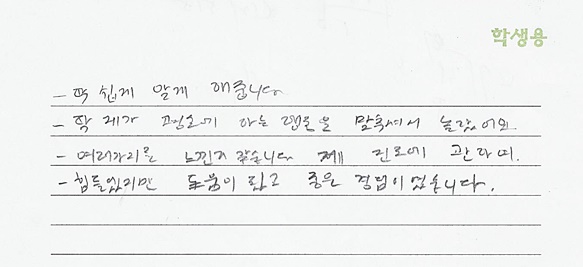 학생용
- 딱 쉽게 알게 해줍니다
- 딱 제가 평소에 하는 행동을 맞추셔서 놀랐어요
- 여러가지를 느낀거 같습니다 제 진로에 관하여.
- 힘들었지만 도움이 됐고 좋은 경험이었습니다.